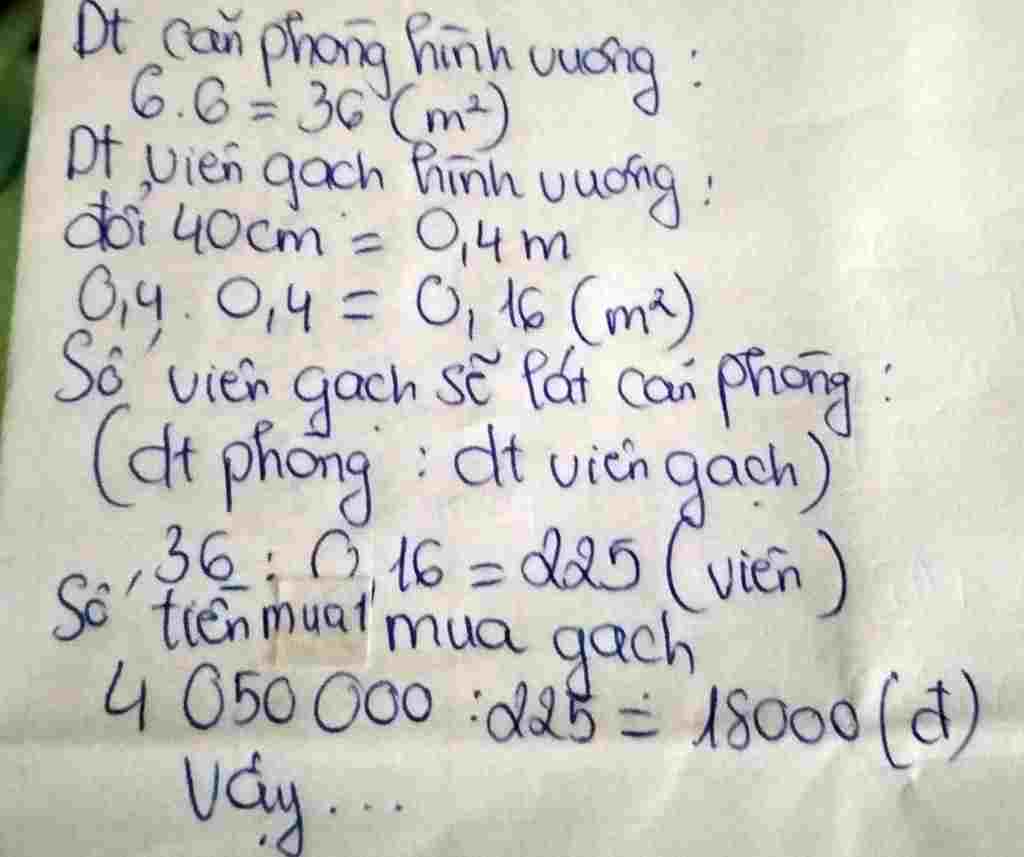 Dt căn phòng hình vuông :
6.6 = 36 (m²)
Dt viên gạch hình vuông :
đổi 40cm = 0,4m
0,4 . 0,4 = 0,16 (m²)
Số viên gạch sẽ lát căn phòng :
(dt phòng : dt viên gạch)
36 : 0,16 = 225 (viên)
Số tiền mua 1 mua gạch
4 050 000 : 225 = 18000 (đ)
Vậy ...